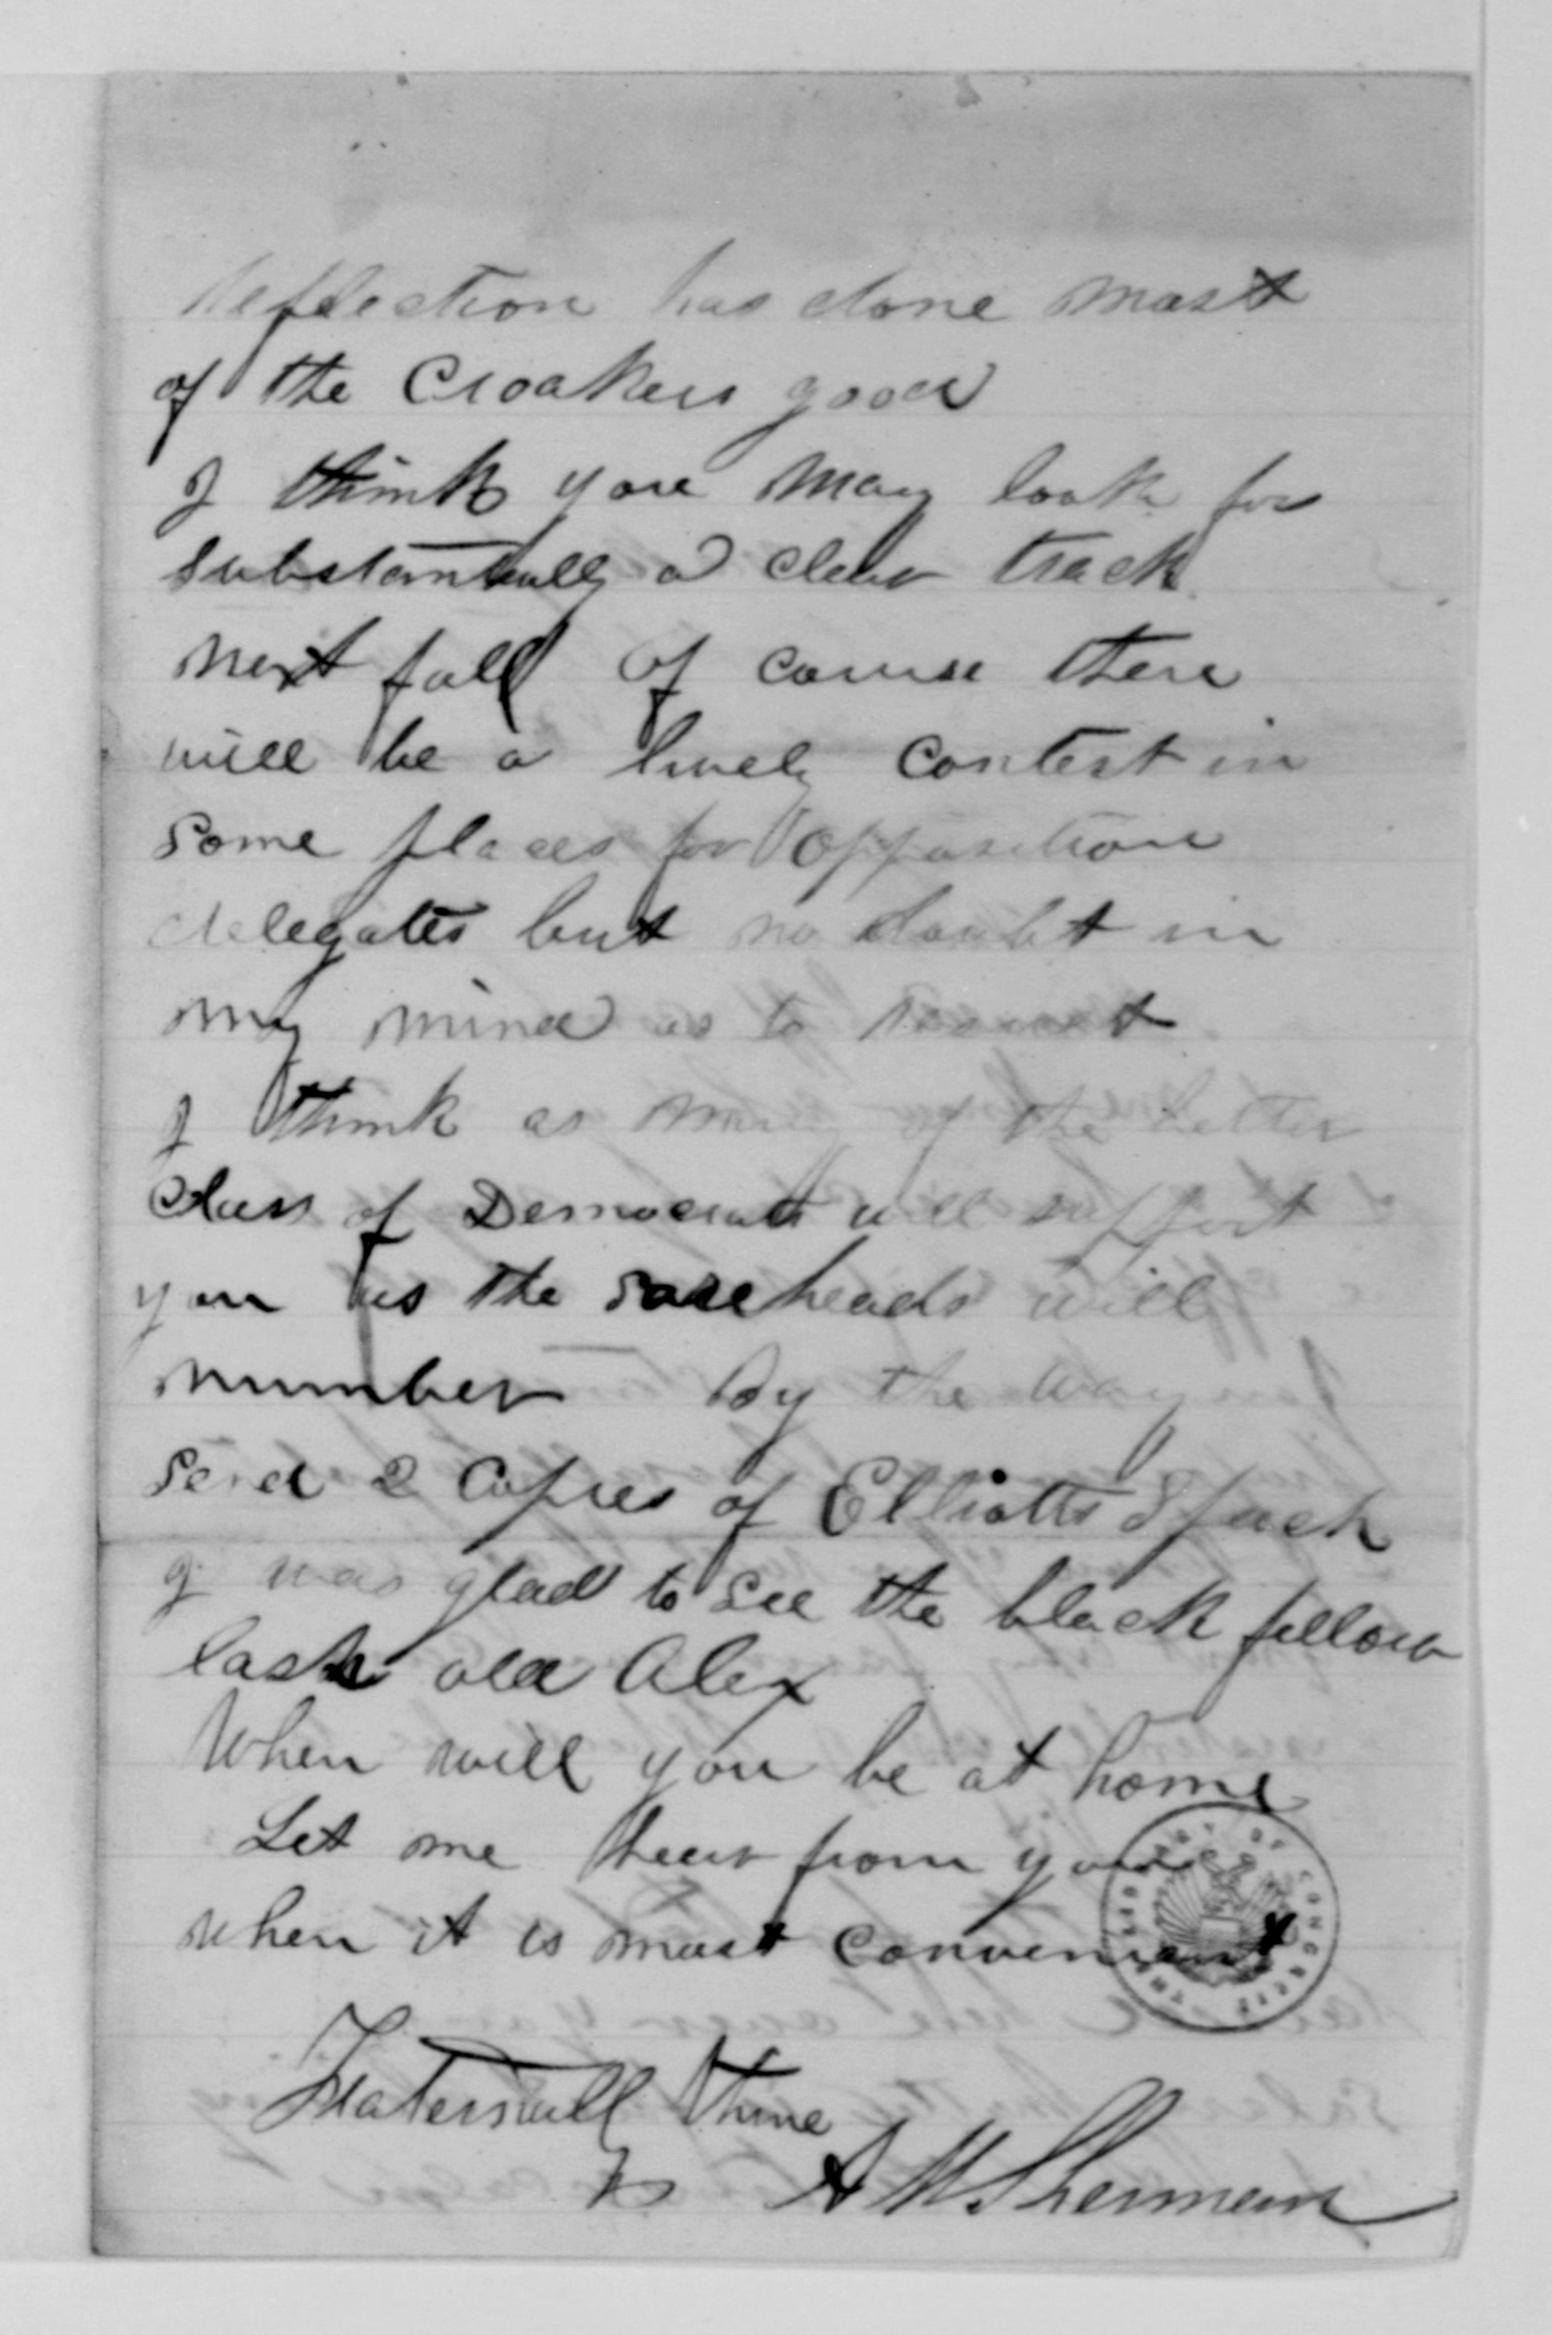 Reflection has done most
of the Croakers good
I think you may look for
substantially a clear track
next fall Of course there
will be a lively contest in
some places for opposition
delegates but no doubt in
my mind as to result
I think as many of the better
Class of Democrats will support
you as the soreheads will
number By the way
send 2 Copies of Elliotts Speech
I was glad to see the black fellow
lash old Alex
When will you be at home
Let me hear from you
when it is most convenient
Fraternally thine
A M Sherman
THE LIBRARY OF CONGRESS